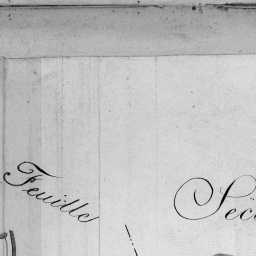 Feuille
Sec